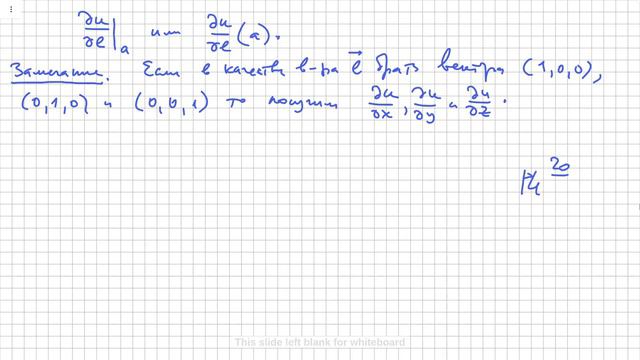 ∂u/∂e|ₐ или ∂u/∂e (a).
Замечание. Если в качестве в-ра e⃗ брать вектора (1,0,0),
(0,1,0) и (0,0,1) то получим ∂u/∂x, ∂u/∂y и ∂u/∂z.
20
This slide left blank for whiteboard